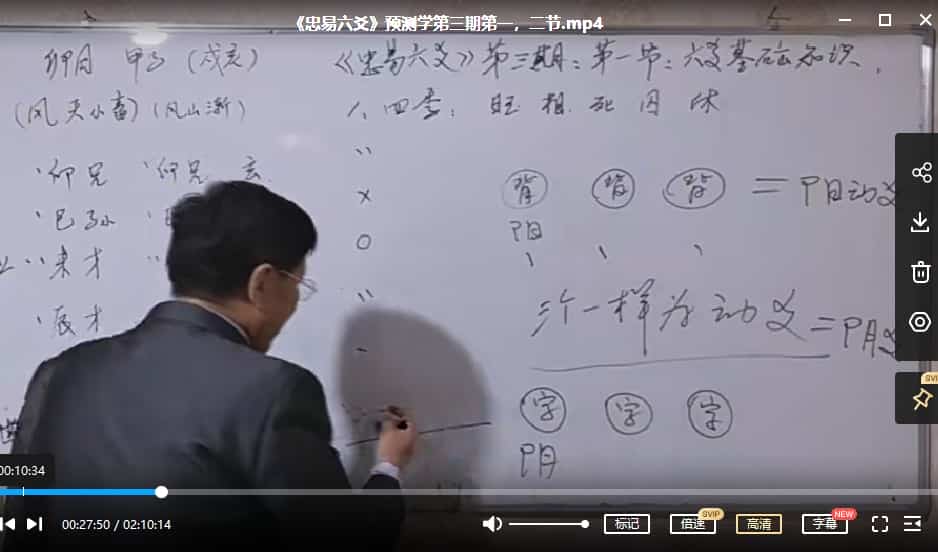 《忠易六爻》预测学第三期第一，二节.mp4
卯月 甲子（戌亥）
《忠易六爻》第三期：第一节：六爻基础知识，
（风天小畜）（风山渐）
八、四季：旺 相 死 囚 休
卯兄 卯兄 玄
巳孙
未才
辰才
背 背 背 = 阳动爻
阳
三个一样为动爻 = 阴
字 字 字
阴
SVIP
00:10:34
00:27:50 / 02:10:14
标记
倍速
SVIP
高清
字幕
NEW